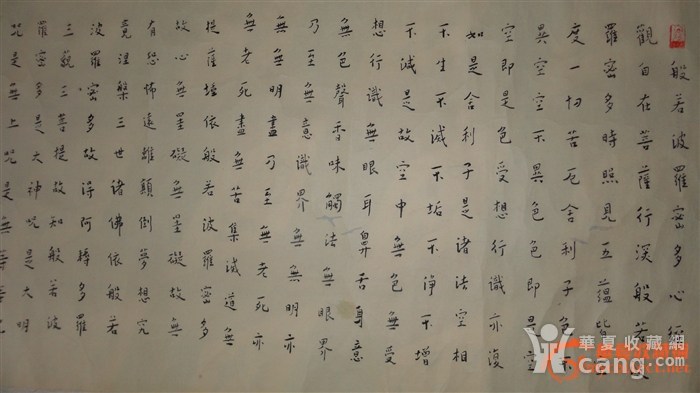 般若波羅密多心經
觀自在菩薩行深般若波
羅密多時照見五蘊皆
度一切苦厄舍利子色不
異空空不異色色即是空
空即是色受想行識亦復
如是舍利子是諸法空相
不生不滅不垢不淨不增
不滅是故空中無色無受
想行識無眼耳鼻舌身意
無色聲香味觸法無眼界
乃至無意識界無無明亦
無無明盡乃至無老死亦
無老死盡無苦集滅道無
提薩埵依般若波羅密多
故心無罣礙無罣礙故無
有恐怖遠離顛倒夢想究
竟涅槃三世諸佛依般若
波羅密多故得阿耨多羅
三藐三菩提故知般若波
羅密多是大神咒是大明
咒是無上咒是無等等
華夏收藏網
cang.com